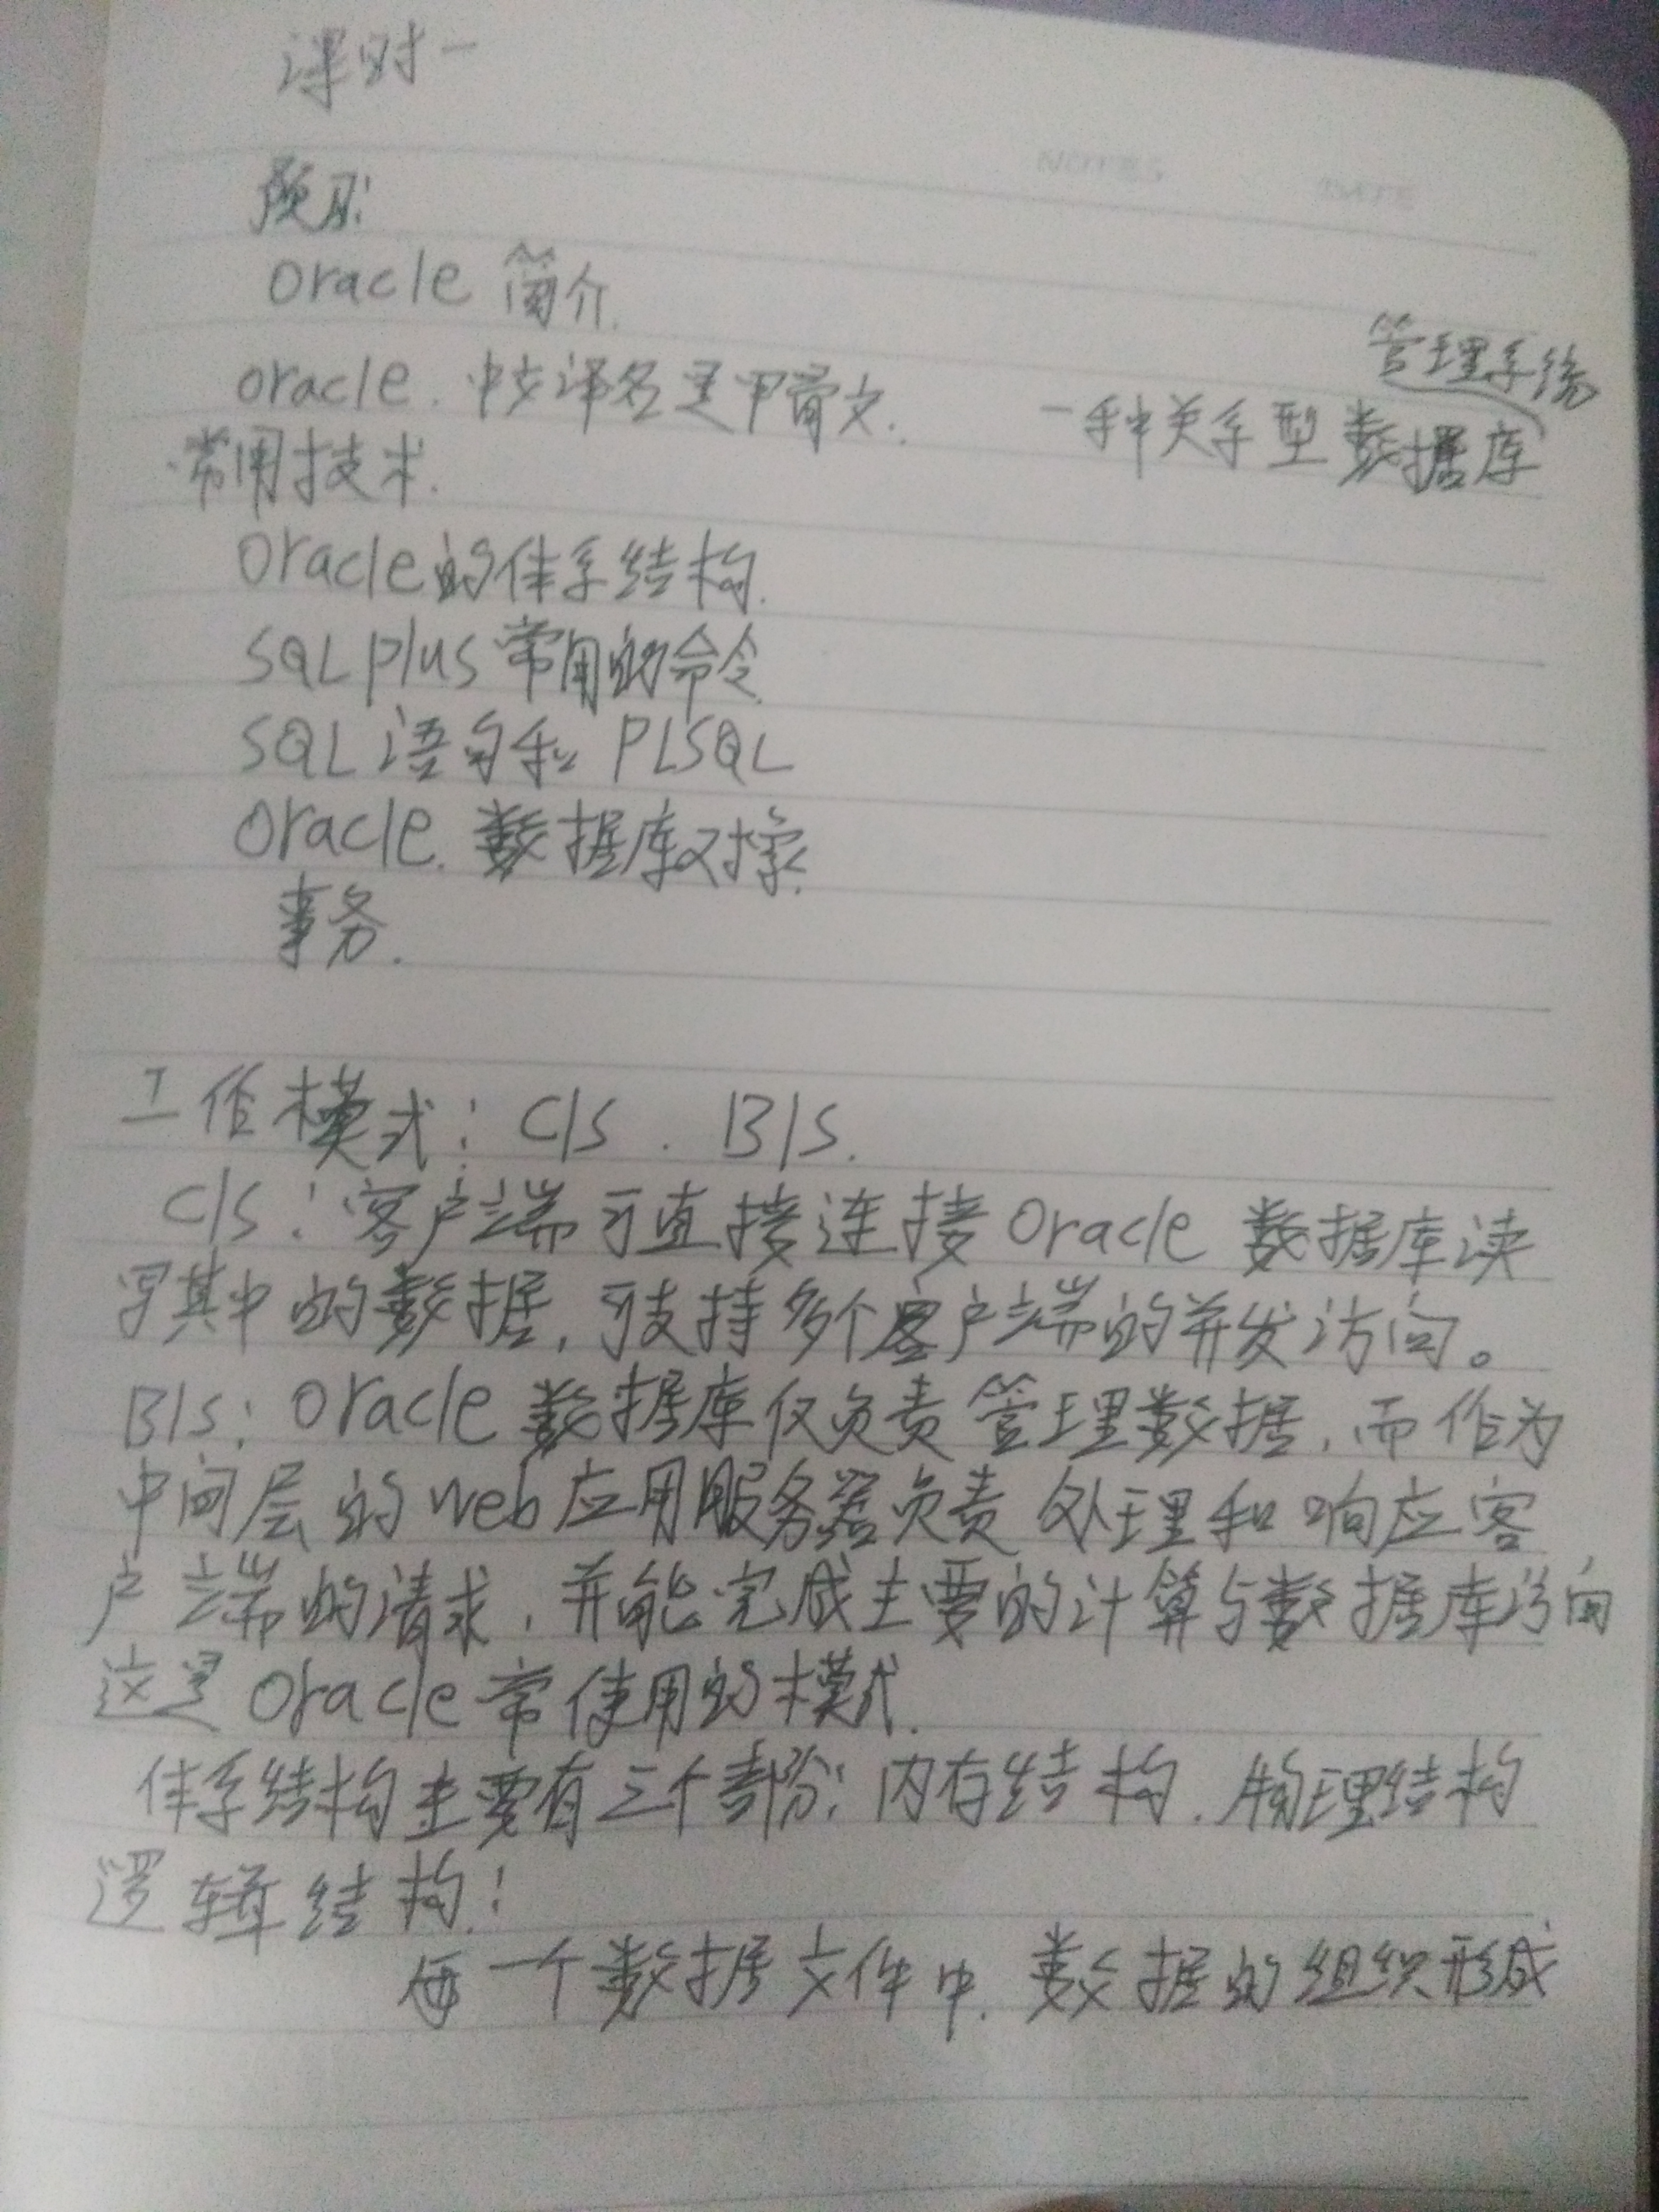 课时一
预习:
oracle 简介.
管理系统
oracle. 中文译名是甲骨文. 一种关系型数据库
常用技术.
oracle的体系结构.
SQL plus 常用的命令.
SQL 语句和 PLSQL
oracle. 数据库对象.
事务.
工作模式: C/S . B/S.
C/S: 客户端可直接连接 oracle 数据库读
写其中的数据, 可支持多个客户端的并发访问。
B/S: oracle 数据库仅负责管理数据, 而作为
中间层的web应用服务器负责 处理和响应客
户端的请求, 并能完成主要的计算与数据库访问
这是 oracle 常使用的模式.
体系结构主要有三个部份: 内存结构. 物理结构
逻辑结构:
每一个数据文件中. 数据的组织形成